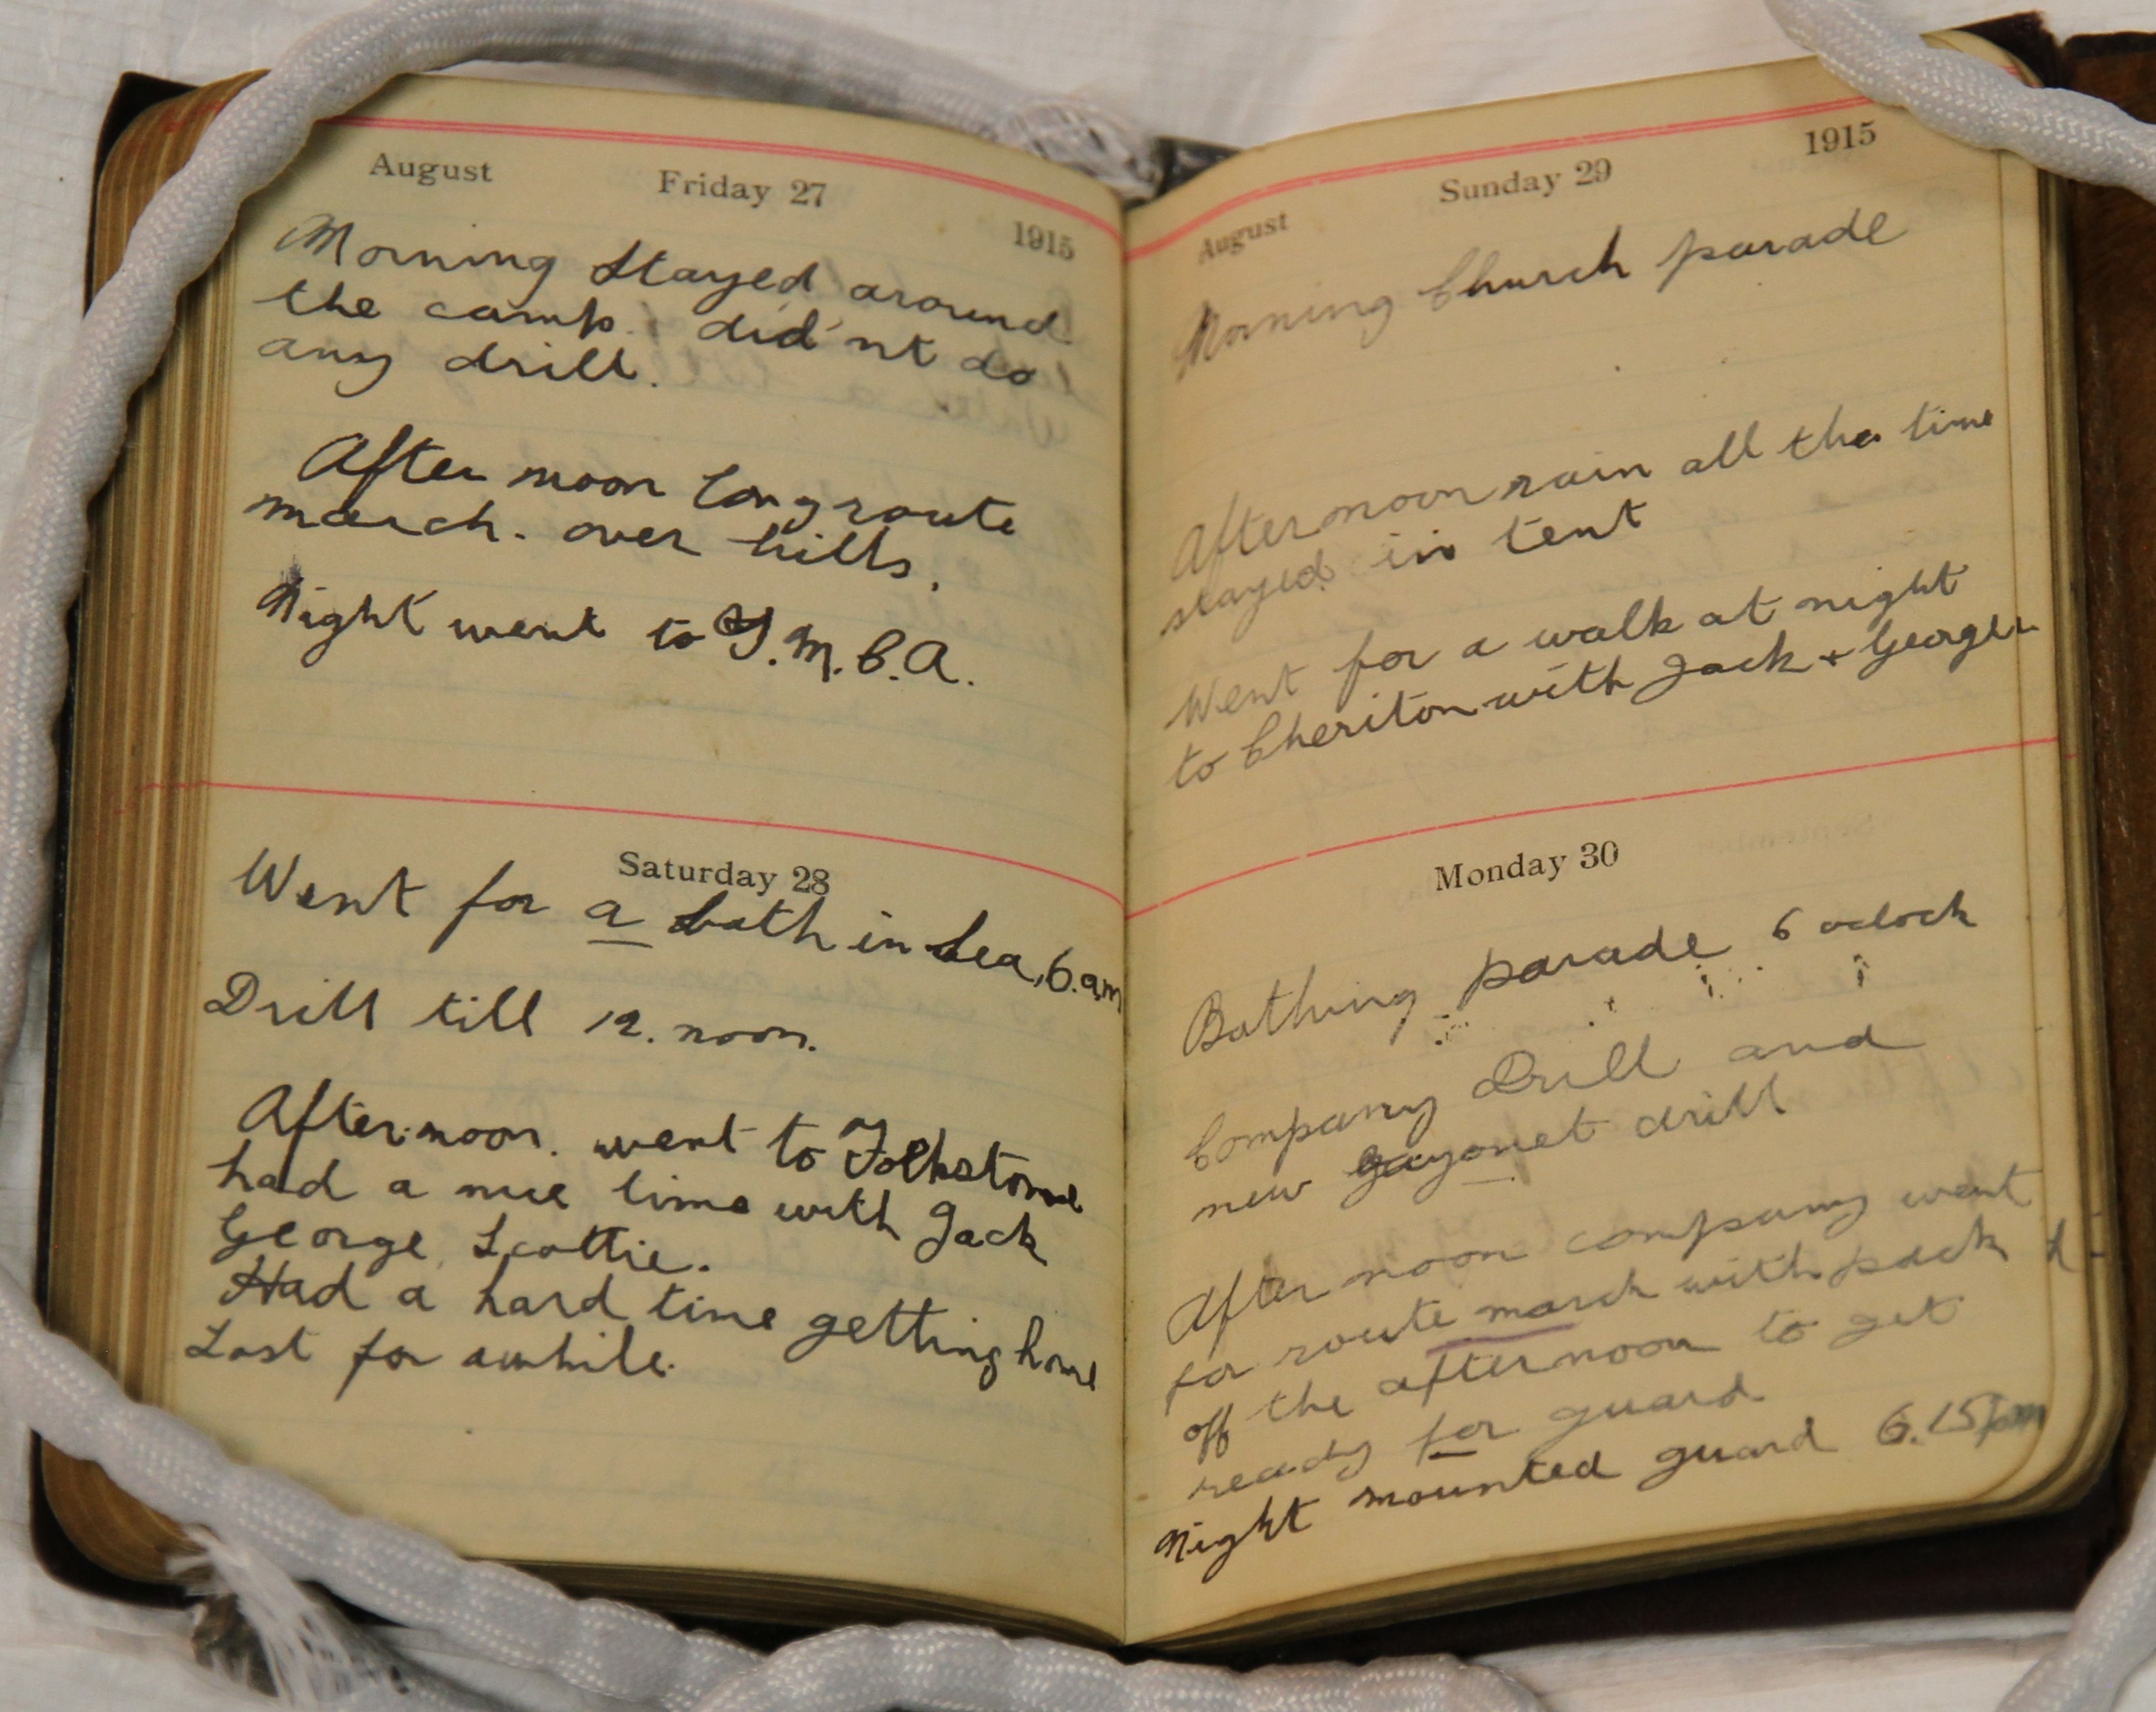 August Friday 27 1915
Morning Stayed around
the camp. did'nt do
any drill.
After noon Long route
march. over hills.
Night went to Y.M.C.A.
Saturday 28
Went for a bath in Sea, 6.am
Drill till 12. noon.
After.noon. went to Folkstone
had a nice time with Jack
George, Scottie.
Had a hard time getting home
Lost for awhile.
August Sunday 29 1915
Morning Church parade
Afternoon rain all the time
stayed in tent
Went for a walk at night
to Cheriton with Jack + George
Monday 30
Bathing parade 6 oclock
Company Drill and
new bayonet drill
After noon company went
for route march with pack
off the afternoon to get
ready for guard
Night mounted guard 6.15 pm